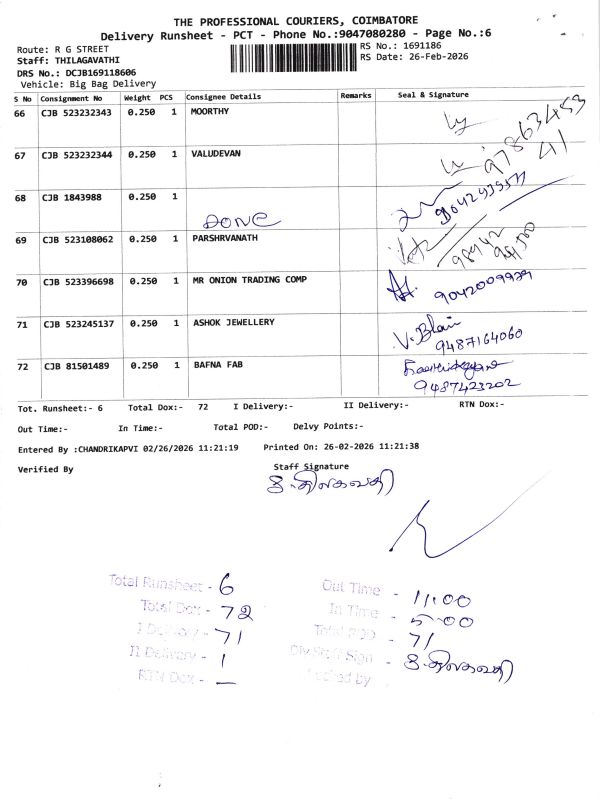 THE PROFESSIONAL COURIERS, COIMBATORE
Delivery Runsheet - PCT - Phone No.:9047080280 - Page No.:6
Route: R G STREET
RS No.: 1691186
Staff: THILAGAVATHI
RS Date: 26-Feb-2026
DRS No.: DCJB169118606
Vehicle: Big Bag Delivery
S No Consignment No Weight PCS Consignee Details Remarks Seal & Signature
66 CJB 523232343 0.250 1 MOORTHY
97863453
41
67 CJB 523232344 0.250 1 VALUDEVAN
68 CJB 1843988 0.250 1
DONE
69 CJB 523108062 0.250 1 PARSHRVANATH
70 CJB 523396698 0.250 1 MR ONION TRADING COMP
9042009939
71 CJB 523245137 0.250 1 ASHOK JEWELLERY
9487164060
72 CJB 81501489 0.250 1 BAFNA FAB
9487423202
Tot. Runsheet:- 6 Total Dox:- 72 I Delivery:- II Delivery:- RTN Dox:-
Out Time:- In Time:- Total POD:- Delvy Points:-
Entered By :CHANDRIKAPVI 02/26/2026 11:21:19 Printed On: 26-02-2026 11:21:38
Verified By Staff Signature
உ.திலகவதி
Total Runsheet - 6
Total Dox - 72
I Delivery - 71
II Delivery - 1
RTN Dox - —
Out Time - 11:00
In Time - 5:00
Total POD - 71
Dlv Staff Sign - உ.திலகவதி